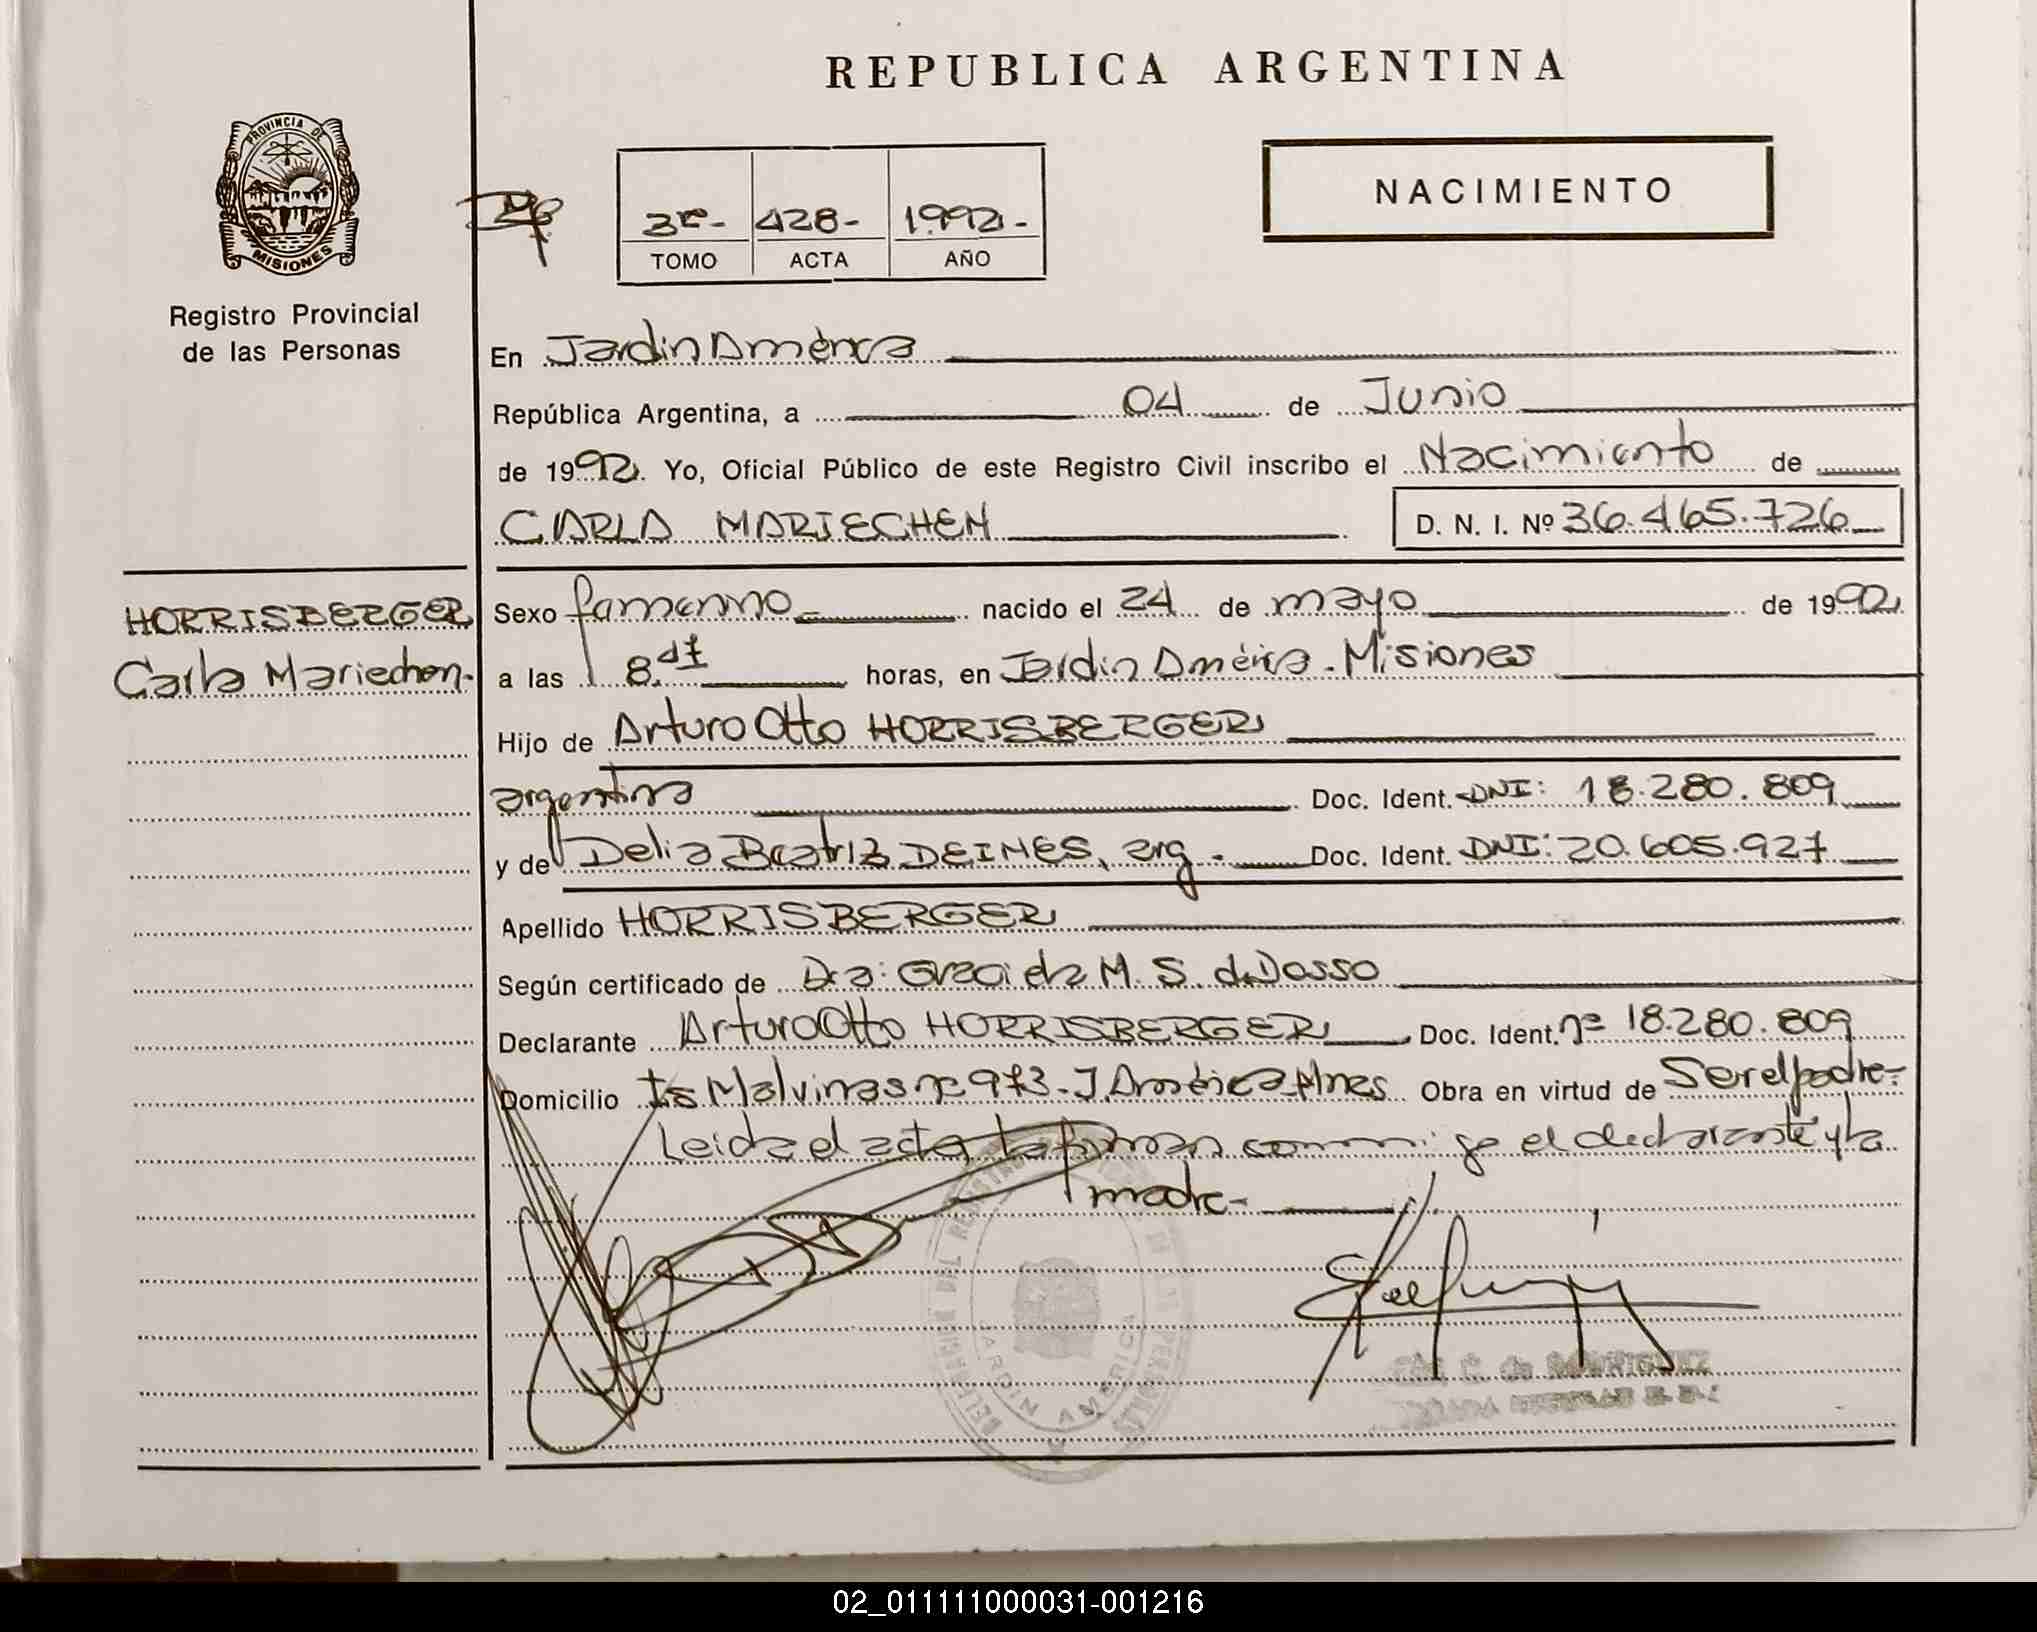 REPUBLICA ARGENTINA
PROVINCIA DE
MISIONES
Registro Provincial
de las Personas
NACIMIENTO
3º- 428- 1992-
TOMO ACTA AÑO
En Jardin América
República Argentina, a 04 de Junio
de 1992. Yo, Oficial Público de este Registro Civil inscribo el Nacimiento de
CARLA MARIECHEN D. N. I. Nº 36.465.726
HORRISBERGER
Carla Mariechen.
Sexo femenino nacido el 24 de mayo de 1992
a las 8. horas, en Jardin América. Misiones
Hijo de Arturo Otto HORRISBERGER
argentina Doc. Ident. DNI: 18.280.809
y de Delia Beatriz DEIMES, arg. Doc. Ident. DNI: 20.605.927
Apellido HORRISBERGER
Según certificado de Dra: Graciela M. S. de Dosso
Declarante Arturo Otto HORRISBERGER Doc. Ident. nº 18.280.809
Domicilio Is Malvinas nº 973- J. América Mnes Obra en virtud de Ser el padre-
Leida el acta, la firman conmigo el declarante y la
madre-
JARDIN AMERICA
02_011111000031-001216